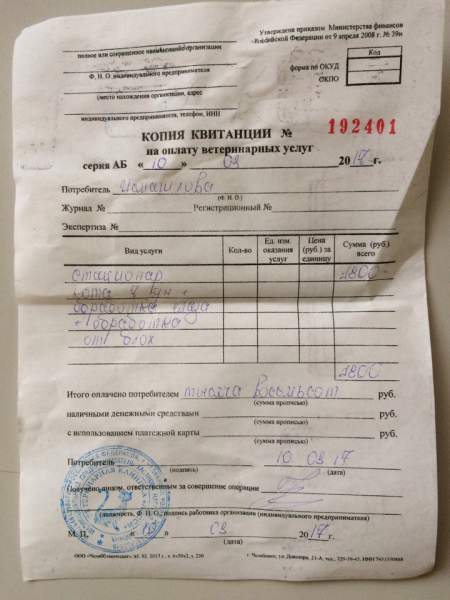 Утверждена приказом Министерства финансов
Российской Федерации от 9 апреля 2008 г. № 39н
полное или сокращенное наименование организации
Код
Ф. И. О. индивидуального предпринимателя
форма по ОКУД
ОКПО
(место нахождения организации, адрес
индивидуального предпринимателя, телефон, ИНН
КОПИЯ КВИТАНЦИИ № 192401
на оплату ветеринарных услуг
серия АБ « 10 » 03 2017 г.
Потребитель
(Ф. И. О.)
Журнал № Регистрационный №
Экспертиза №
Вид услуги Кол-во Ед. изм. оказания услуг Цена (руб.) за единицу Сумма (руб.) всего
стационар 1800
кота
обработка глаза
+ обработка
от блох
1800
Итого оплачено потребителем тысяча восемьсот руб.
(сумма прописью)
наличными денежными средствами руб.
(сумма прописью)
с использованием платежной карты руб.
(сумма прописью)
Потребитель 10 03 17
(подпись) (дата)
Получено лицом, ответственным за совершение операции
(должность, Ф. И. О., подпись работника организации (индивидуального предпринимателя)
М. П. « 10 » 03 2017 г.
(дата)